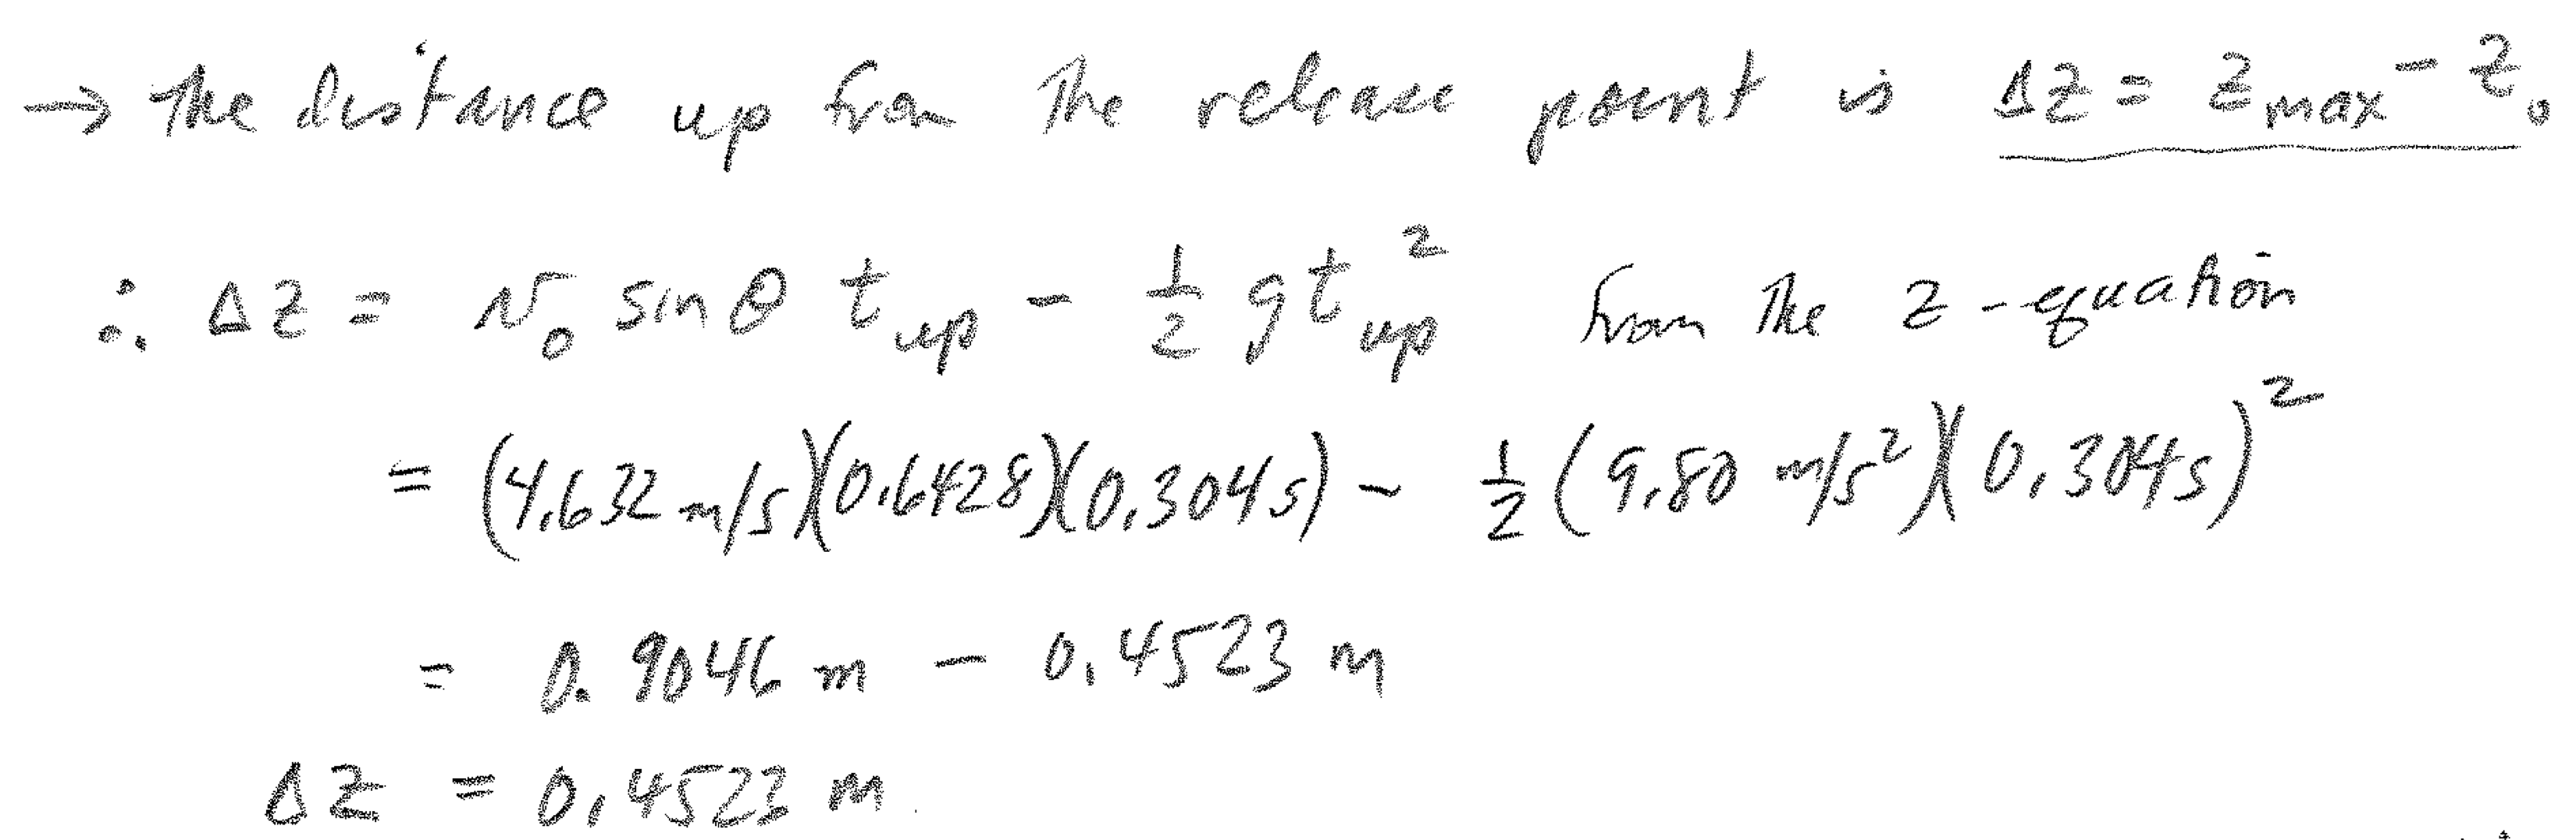 → The distance up from the release point is Δz = z_max - z_0
∴ Δz = v_0 sin θ t_up - 1/2 g t_up^2 from the z-equation
= (4.632 m/s)(0.6428)(0.304 s) - 1/2 (9.80 m/s^2)(0.304 s)^2
= 0.9046 m - 0.4523 m
Δz = 0.4523 m